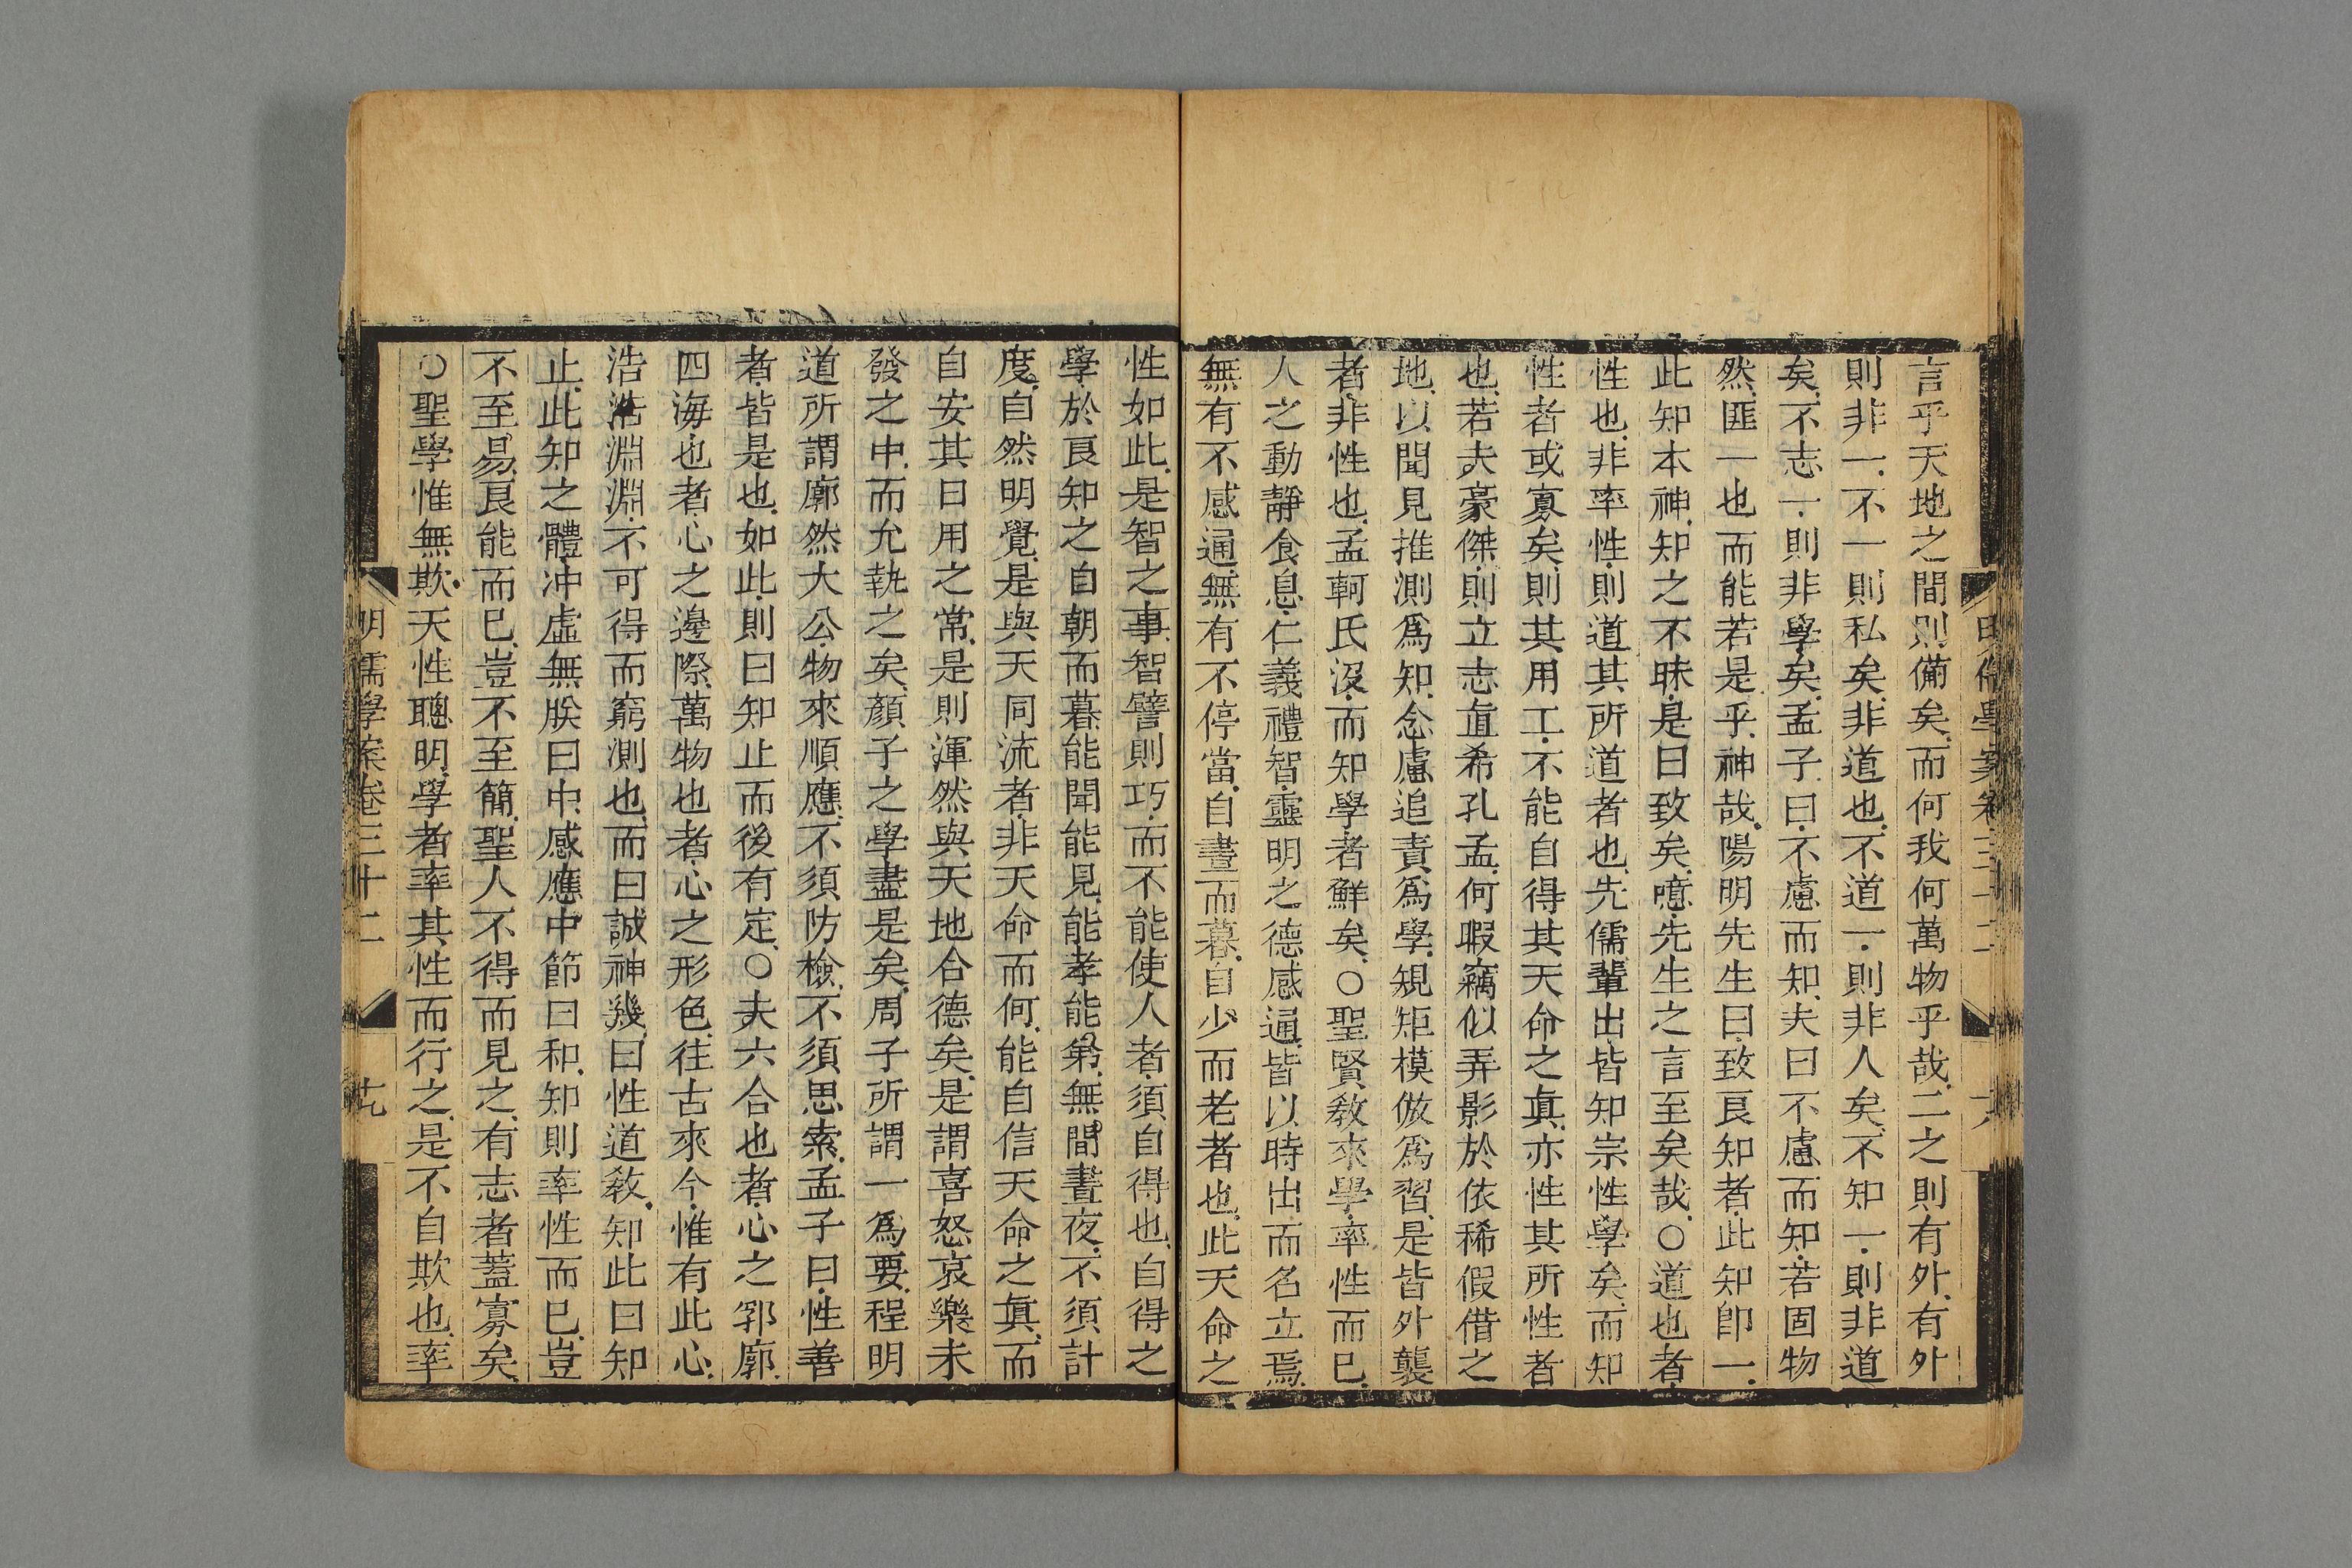 明儒學案卷三十二
六
言乎天地之間則備矣而何我何萬物乎哉二之則有外有外
則非一不一則私矣非道也不道一則非人矣不知一則非道
矣不志一則非學矣孟子曰不慮而知夫曰不慮而知若固物
然匪一也而能若是乎神哉陽明先生曰致良知者此知卽一
此知本神知之不昧是曰致矣噫先生之言至矣哉○道也者
性也非率性則道其所道者也先儒輩出皆知宗性學矣而知
性者或寡矣則其用工不能自得其天命之眞亦性其所性者
也若夫豪傑則立志直希孔孟何暇竊似弄影於依稀假借之
地以聞見推測爲知念慮追責爲學規矩模倣爲習是皆外襲
者非性也孟軻氏沒而知學者鮮矣○聖賢教來學率性而已
人之動靜食息仁義禮智靈明之德感通皆以時出而名立焉
無有不感通無有不停當自晝而暮自少而老者也此天命之
性如此是智之事智譬則巧而不能使人者須自得也自得之
學於良知之自朝而暮能聞能見能孝能弟無間晝夜不須計
度自然明覺是與天同流者非天命而何能自信天命之眞而
自安其日用之常是則渾然與天地合德矣是謂喜怒哀樂未
發之中而允執之矣顏子之學盡是矣周子所謂一爲要程明
道所謂廓然大公物來順應不須防檢不須思索孟子曰性善
者皆是也如此則曰知止而後有定○夫六合也者心之郛廓
四海也者心之邊際萬物也者心之形色往古來今惟有此心
浩浩淵淵不可得而窮測也而曰誠神幾曰性道教知此曰知
止此知之體冲虛無朕曰中感應中節曰和知則率性而已豈
不至易良能而已豈不至簡聖人不得而見之有志者蓋寡矣
○聖學惟無欺天性聰明學者率其性而行之是不自欺也率
明儒學案卷三十二